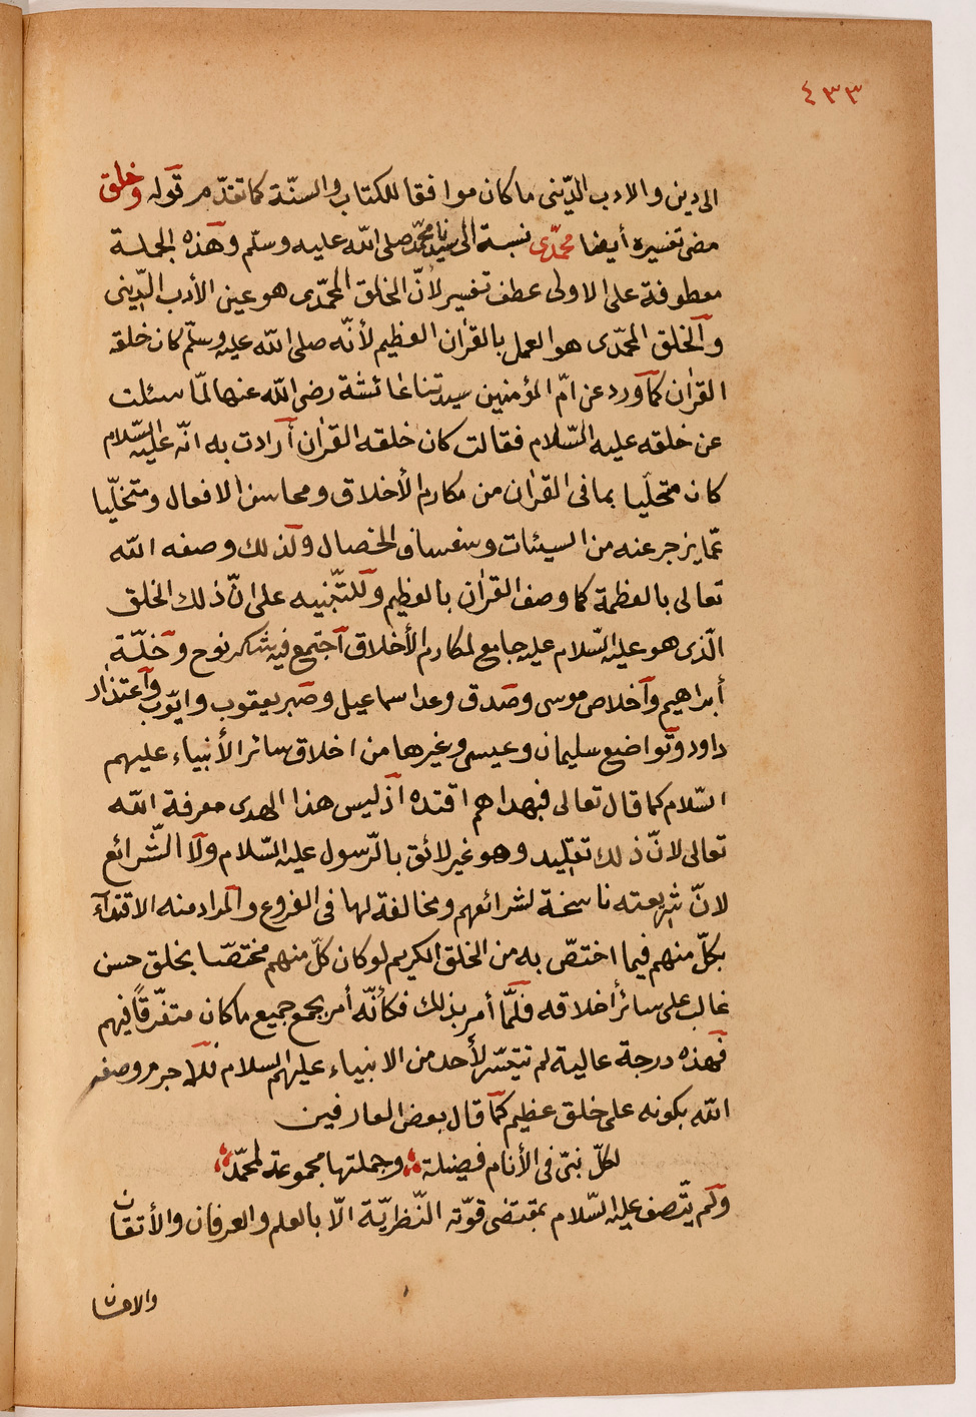 ٤٣٣
الى دين والادب الدّينى ما كان موافقا للكتاب والسنّة كما تقدّم قوله وخلق
مضى تفسيره أيضا محمّدى نسبة الى سيدنا محمّد صلى الله عليه وسلّم وهذه الجملة
معطوفة على الاولى عطف تفسير لأنّ الخلق المحمّدى هو عين الأدب الدّينى
والخلق المحمّدى هو العمل بالقرآن العظيم لأنّه صلى الله عليه وسلّم كان خلقه
القرآن كما ورد عن امّ المؤمنين سيدتنا عائشة رضى الله عنها لمّا سئلت
عن خلقه عليه السّلام فقالت كان خلقه القرآن أرادت به انّه عليه السّلام
كان متحلّيا بما فى القرآن من مكارم الأخلاق ومحاسن الافعال ومتخلّيا
عمّا يزجر عنه من السيئات وسفساف الخصال ولذلك وصفه الله
تعالى بالعظمة كما وصف القرآن بالعظيم وللتّنبيه على انّ ذلك الخلق
الّذى هو عليه السّلام عليه جامع لمكارم الأخلاق اجتمع فيه شكر نوح وخلّة
أبراهيم وأخلاص موسى وصدق وعد اسماعيل وصبر يعقوب وايّوب واعتذار
داود وتواضع سليمان وعيسى وغيرها من اخلاق سائر الأنبياء عليهم
السّلام كما قال تعالى فبهداهم اقتده اذ ليس هذا الهدى معرفة الله
تعالى لانّ ذلك تقليد وهو غير لائق بالرّسول عليه السّلام ولا الشّرائع
لانّ شريعته ناسخة لشرائعهم ومخالفة لها فى الفروع والمراد منه الاقتداء
بكلّ منهم فيما اختصّ به من الخلق الكريم لو كان كلّ منهم مختصّا بخلق حسن
غالب على سائر أخلاقه فلمّا أمر بذلك فكأنّه أمر بجمع جميع ما كان متفرّقا فيهم
فهذه درجة عالية لم تتيسّر لأحد من الانبياء عليهم السلام فلا جرم وصفه
الله بكونه على خلق عظيم كما قال بعض العارفين
لكلّ نبىّ فى الأنام فضيلة وجملتها مجموعة لمحمّد
ولم يتّصف عليه السّلام بمقتضى قوّته النّظريّة الّا بالعلم والعرفان والأتقان